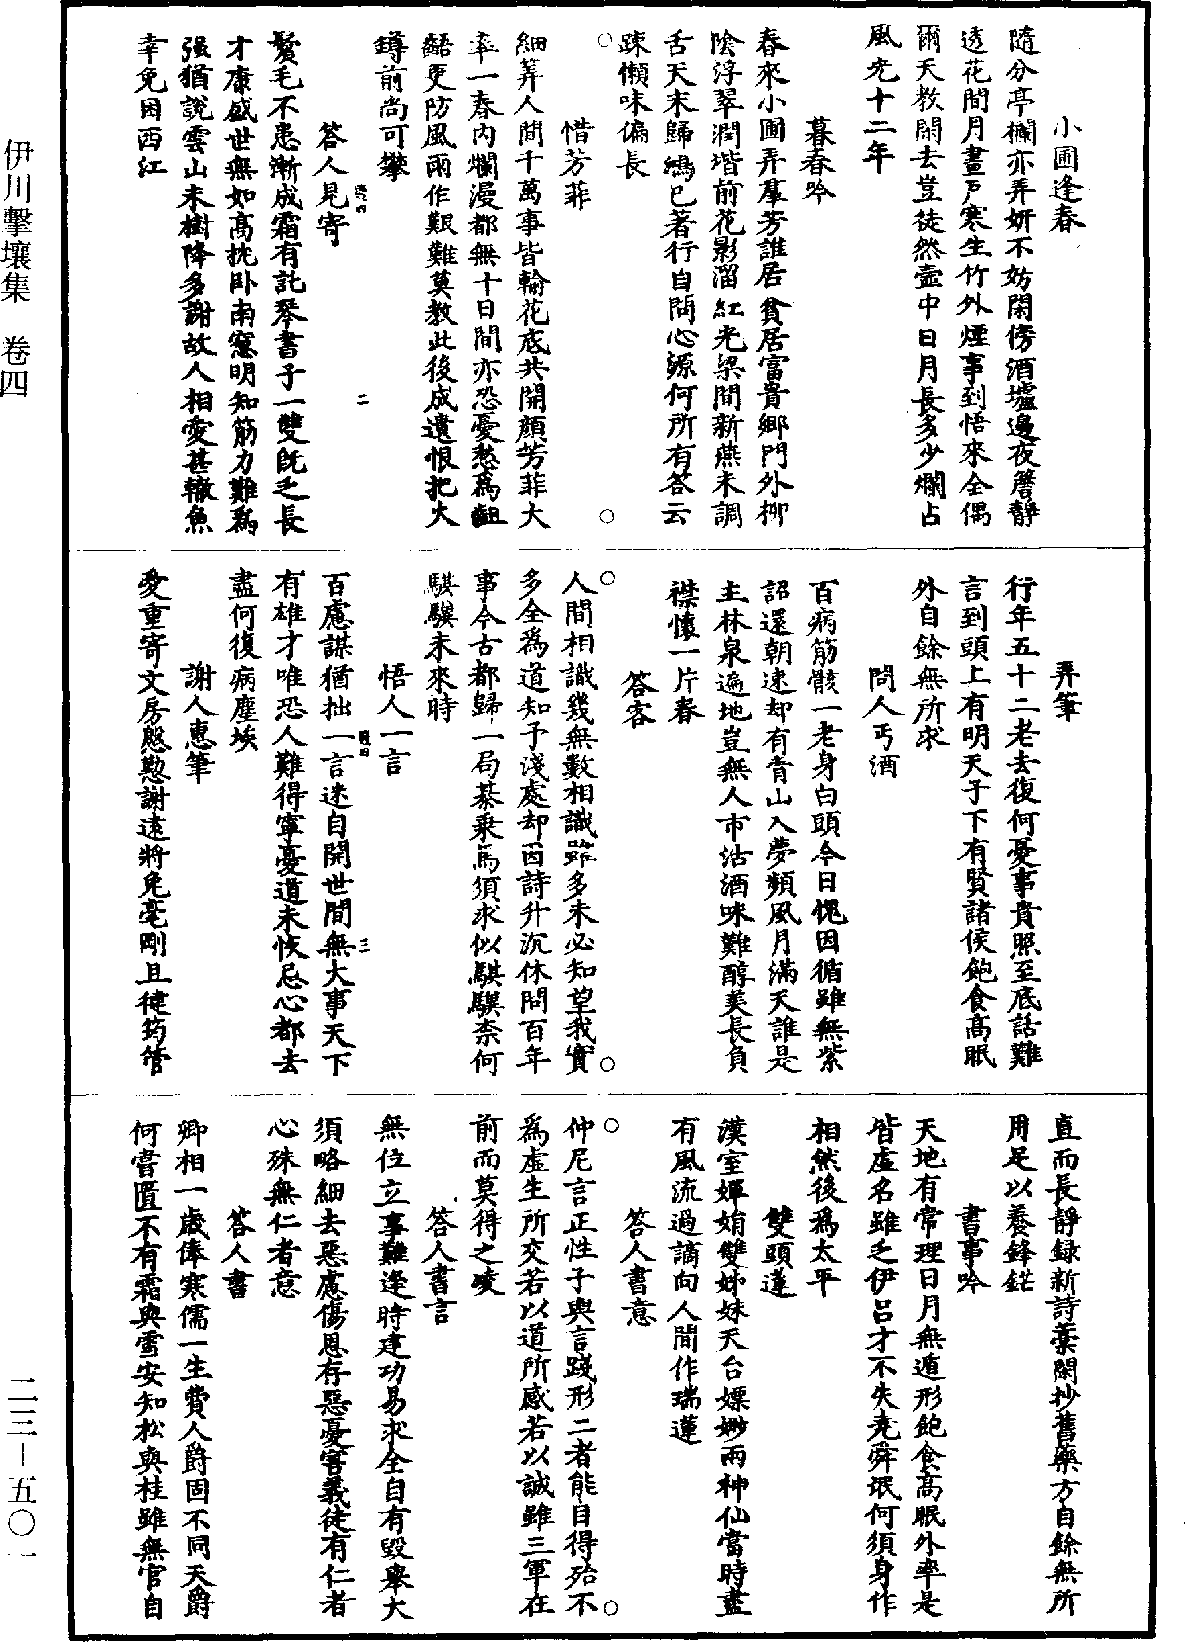 小圃逢春
隨分亭欄亦弄妍不妨閑傍酒壚邊夜簷靜
透花間月晝戶寒生竹外煙事到悟來全偶
爾天教閑去豈徒然壺中日月長多少爛占
風光十二年
暮春吟
春來小圃弄羣芳誰居貧居富貴鄉門外柳
陰浮翠潤堦前花影溜紅光梁間新燕未調
舌天末歸鴻已著行自問心源何所有答云
踈懶味偏長
惜芳菲
細筭人間千萬事皆輸花底共開顏芳菲大
率一春內爛漫都無十日間亦恐憂愁爲齟
齬更防風雨作艱難莫教此後成遺恨把火
罇前尚可攀
答人見寄
鬂毛不患漸成霜有託琴書子一雙旣乏長
才康盛世無如高枕卧南窻明知筋力難爲
强猶說雲山未樹降多謝故人相愛甚轍魚
幸免困西江
二
弄筆
行年五十二老去復何憂事貴照至底話難
言到頭上有明天子下有賢諸侯飽食高眠
外自餘無所求
問人丐酒
百病筋骸一老身白頭今日愧因循雖無紫
詔還朝速却有青山入夢頻風月滿天誰是
主林泉遍地豈無人市沽酒味難醇美長負
襟懷一片春
答客
人間相識幾無數相識雖多未必知望我實
多全爲道知予淺處却因詩升沉休問百年
事今古都歸一局棊乘馬須求似騏驥柰何
騏驥未來時
悟人一言
百慮謀猶拙一言迷自開世間無大事天下
有雄才唯恐人難得寧憂道未恢忌心都去
盡何復病塵埃
三
謝人惠筆
愛重寄文房慇懃謝遠將兔毫剛且健筠管
直而長靜録新詩藁閑抄舊藥方自餘無所
用足以養鋒鋩
書事吟
天地有常理日月無遁形飽食高眠外率是
皆虛名雖乏伊呂才不失堯舜氓何須身作
相然後爲太平
雙頭蓮
漢室嬋娟雙姊妹天台嫖緲兩神仙當時盡
有風流過謫向人間作瑞蓮
答人書意
仲尼言正性子輿言踐形二者能自得殆不
爲虛生所交若以道所感若以誠雖三軍在
前而莫得之凌
答人書言
無位立事難逢時建功易求全自有毀舉大
須略細去惡慮傷恩存惡憂害義徒有仁者
心殊無仁者意
答人書
卿相一歲俸寒儒一生費人爵固不同天爵
何嘗匱不有霜與雪安知松與桂雖無官自
伊川擊壤集 卷四
二三—五〇一